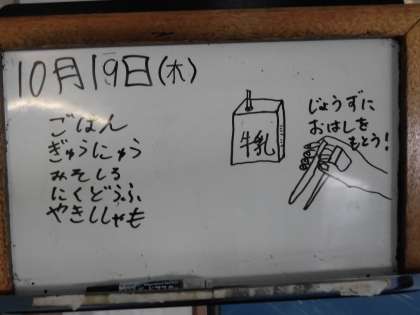 10月19日(木)
ごはん
ぎゅうにゅう
みそしる
にくどうふ
やきししゃも
牛乳
じょうずに
おはしを
もとう!